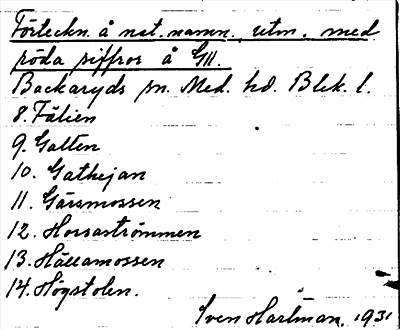 Förteckn. å nat. namn, utm. med
röda siffror å GM.
Backaryds sn. Med. hd. Blek. l.
8. Fälien
9. Galten
10. Gathejan
11. Gårsmossen
12. Horsaströmmen
13. Hällamossen
14. Högstolen.
Sven Hartman. 1931